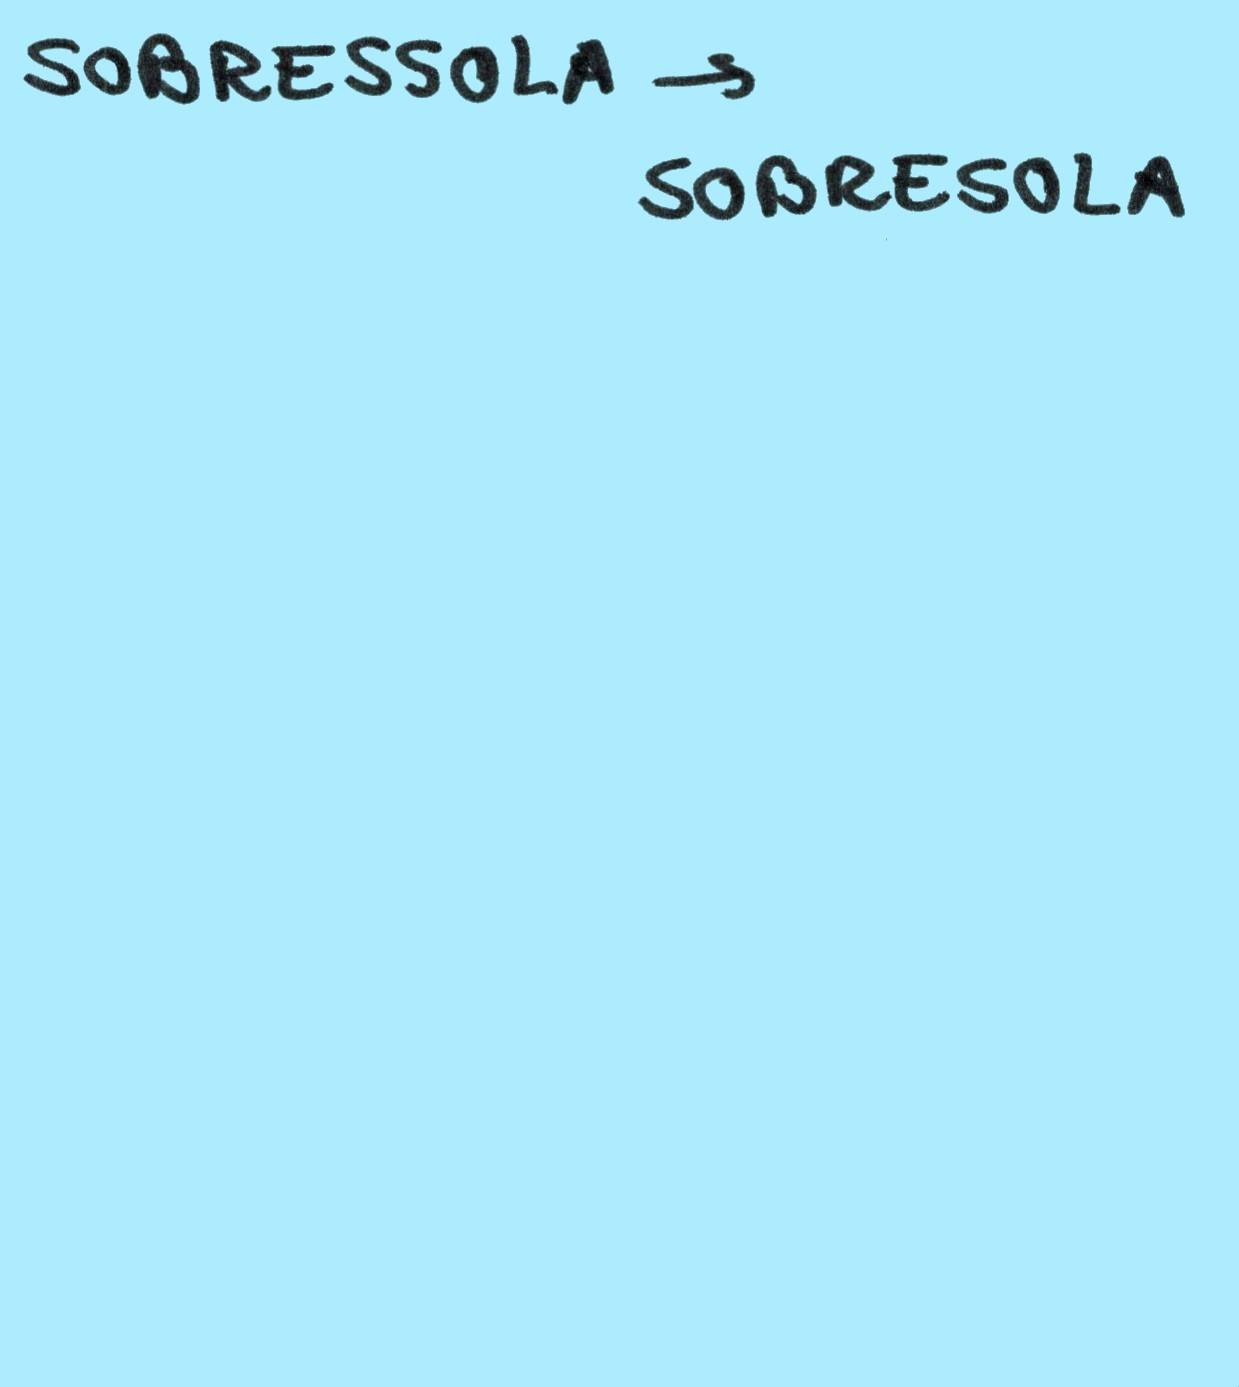 SOBRESSOLA →
SOBRESOLA